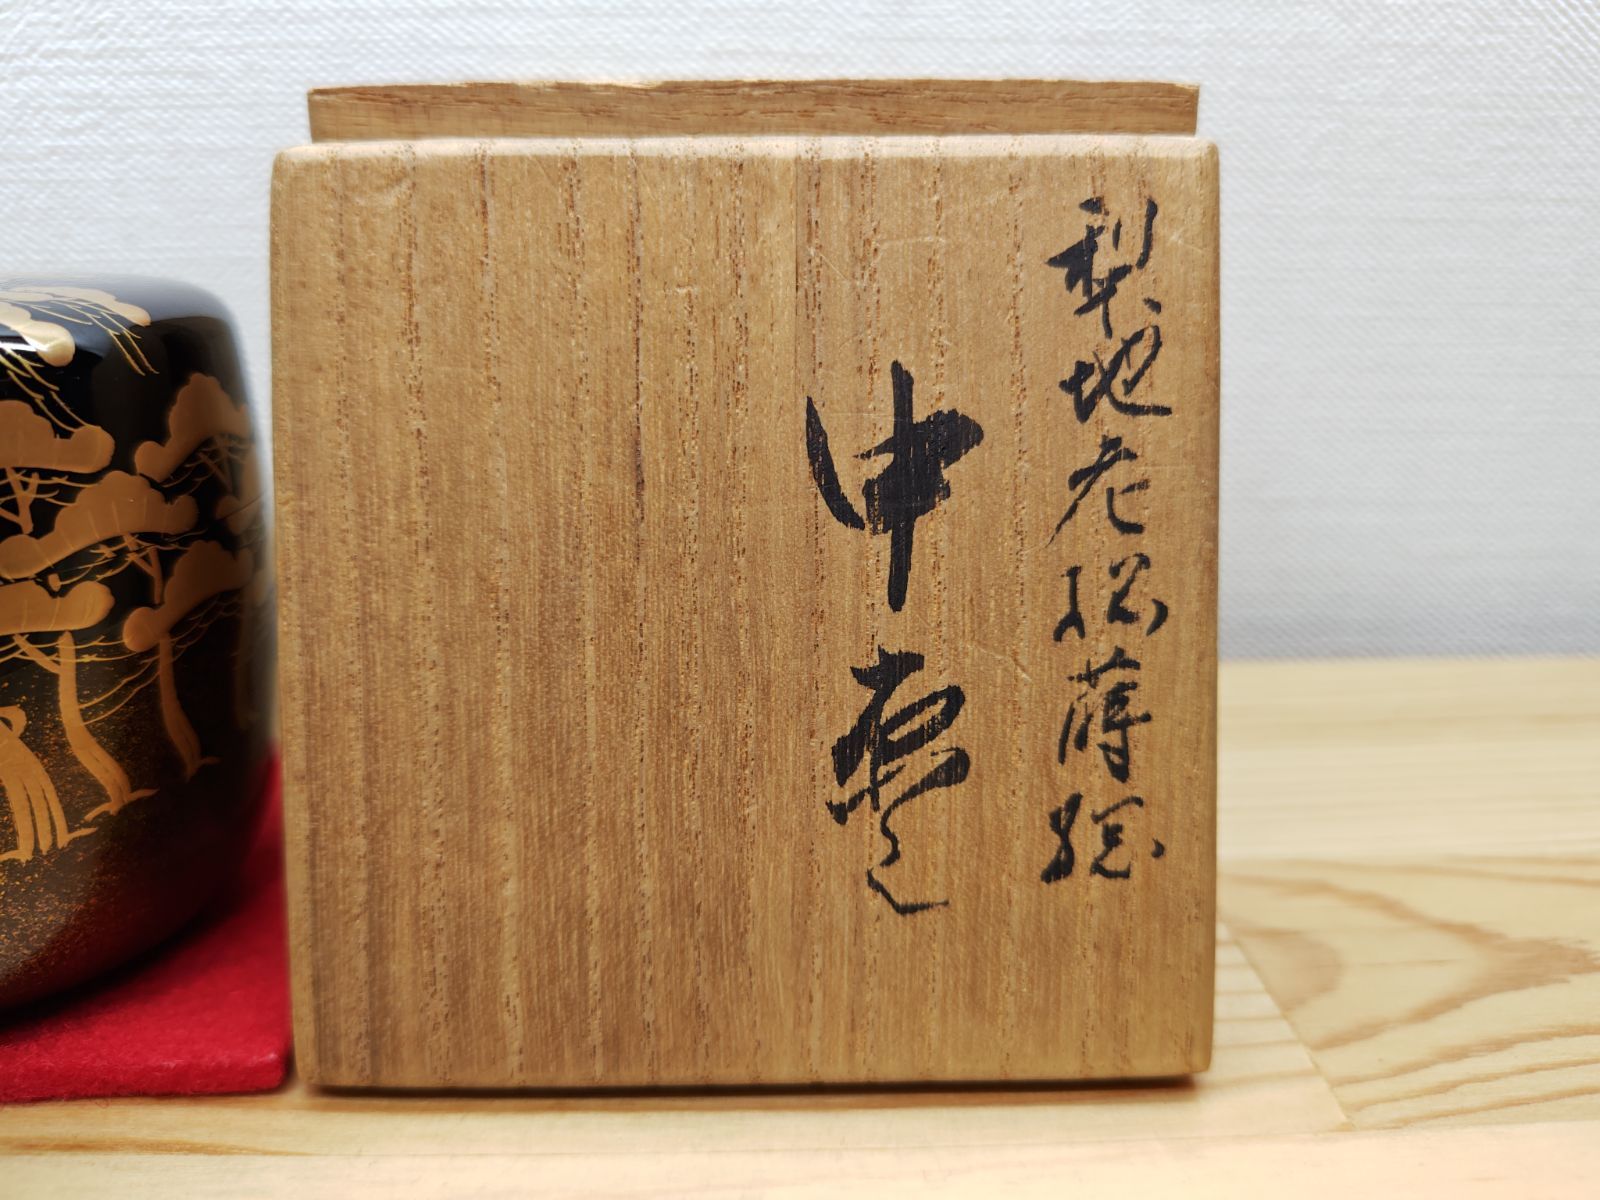 梨地老松蒔絵
中棗